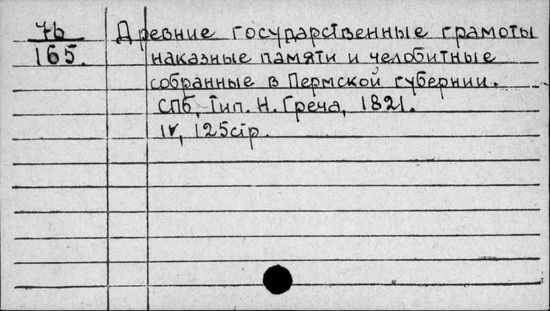 7b Древние государственные грамоты
165. наказные памяти и челобитные
собранные в Пермской губернии.
СПб, Тип. Н. Греча, 1821.
IV, 125стр.